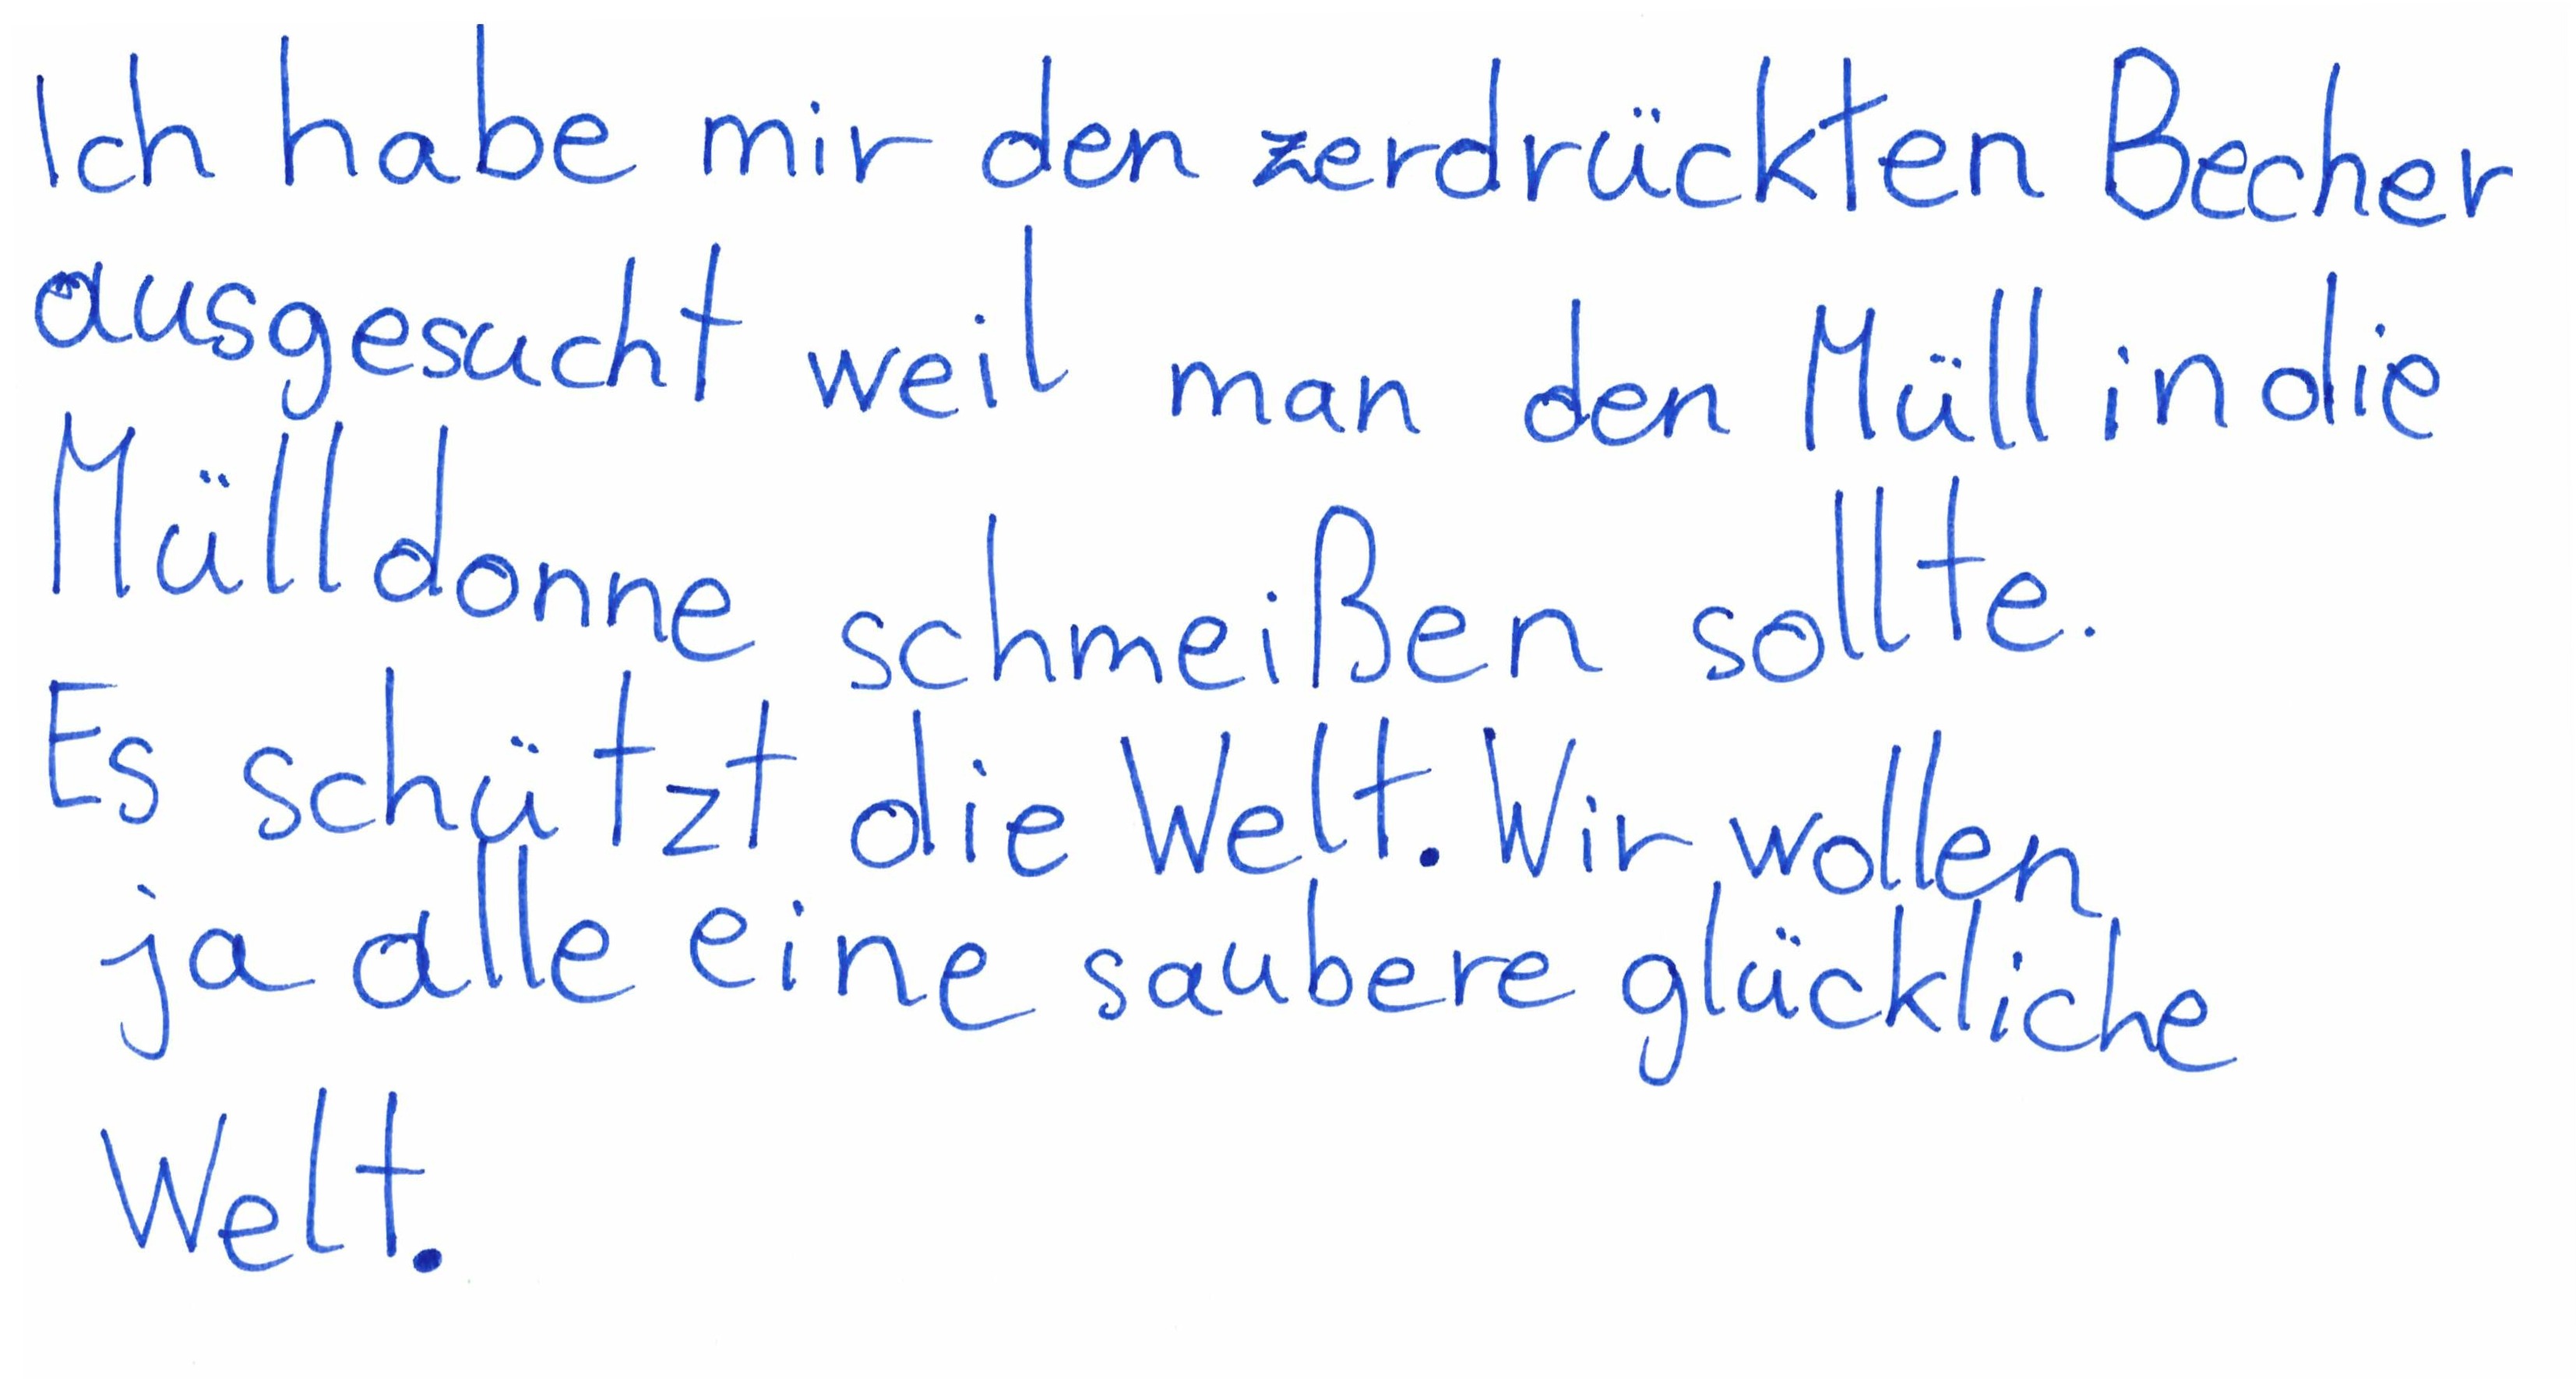 Ich habe mir den zerdrückten Becher
ausgesucht weil man den Müll in die
Mülldonne schmeißen sollte.
Es schützt die Welt. Wir wollen
ja alle eine saubere glückliche
Welt.